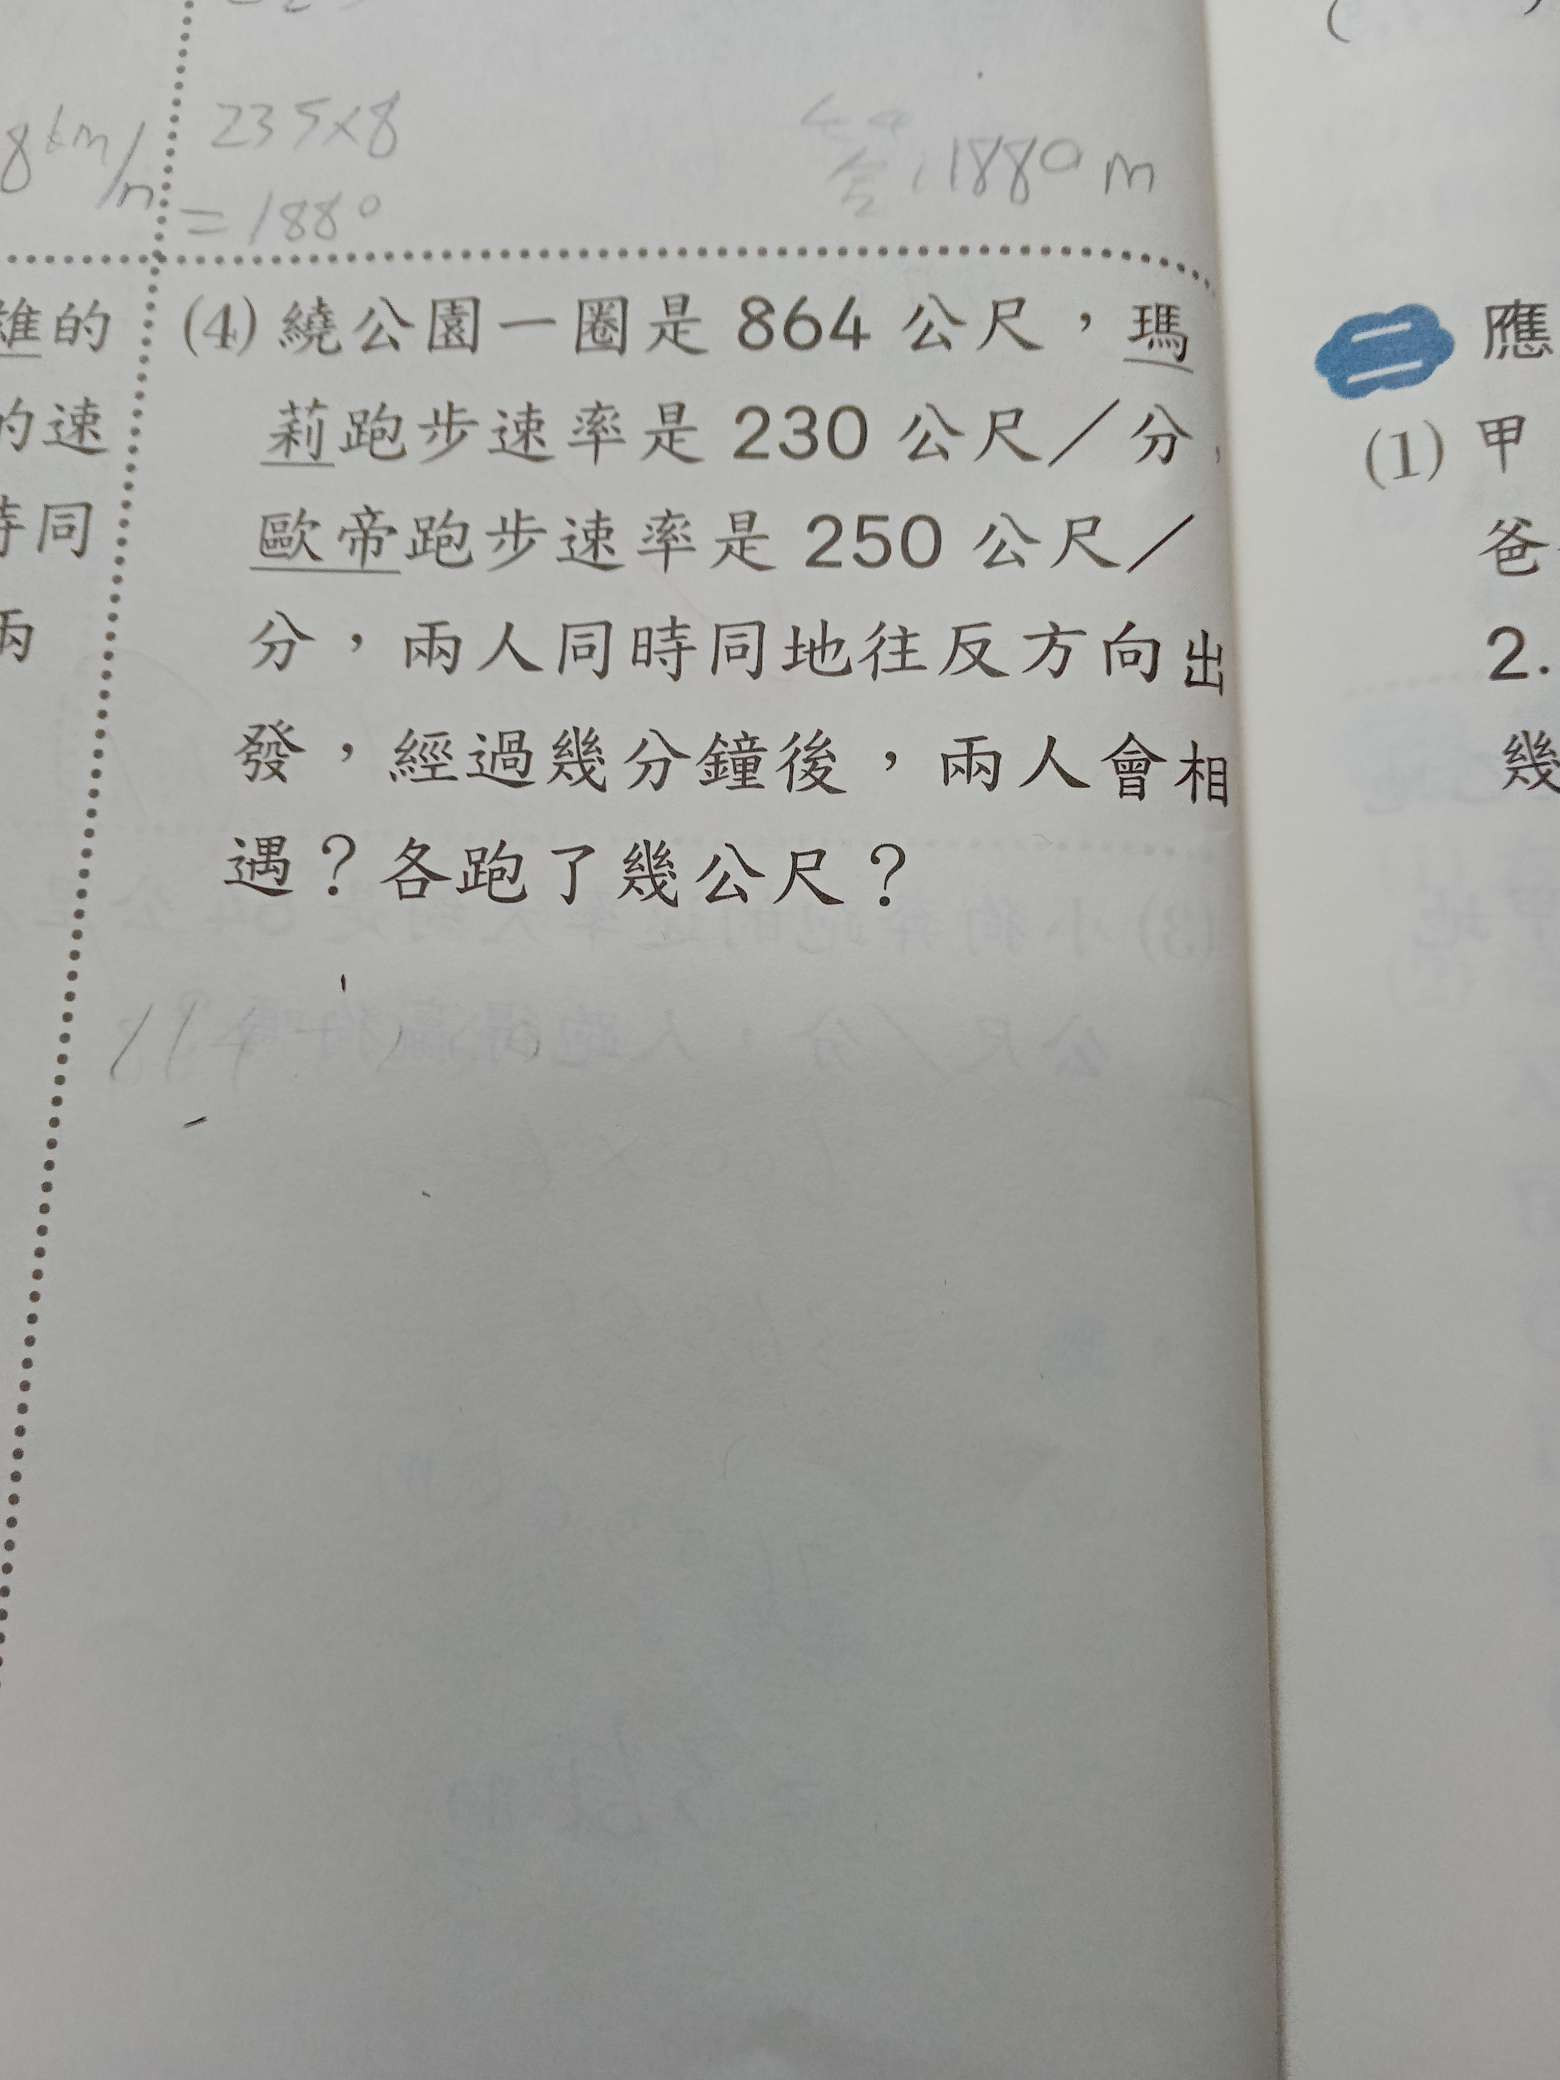 8km/n
235×8
=1880
1880m
誰的
的速
時同
兩
(4) 繞公園一圈是 864 公尺,瑪
莉跑步速率是 230 公尺/分,
歐帝跑步速率是 250 公尺/
分,兩人同時同地往反方向出
發,經過幾分鐘後,兩人會相
遇?各跑了幾公尺?
應
(1) 甲
爸
2.
幾